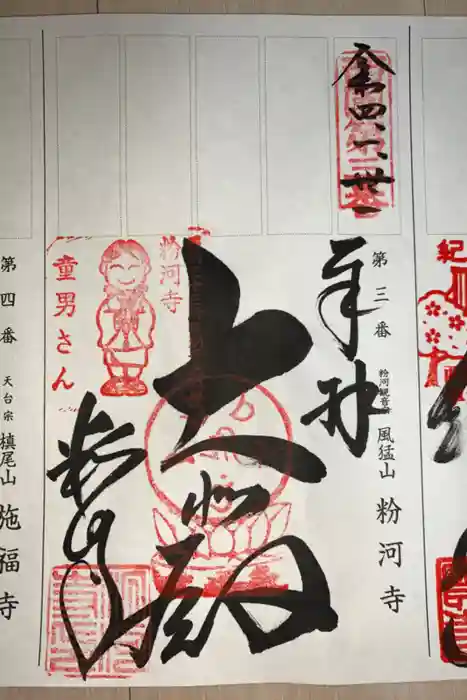 令四、一、廿一
第三番
粉河観音宗
風猛山
粉河寺
奉拝
大悲殿
粉河寺
粉河寺
童男さん
第四番
天台宗
槙尾山
施福寺
紀